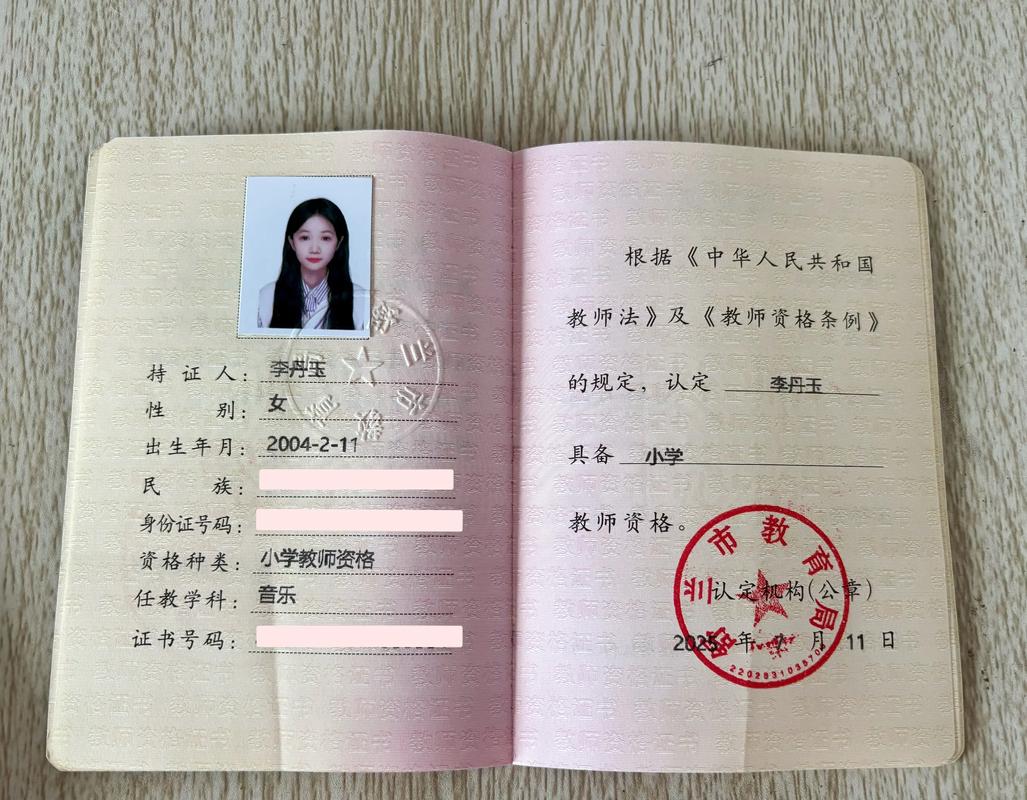 持证人：李丹玉
性别：女
出生年月：2004-2-11
民族：
身份证号码：
资格种类：小学教师资格
任教学科：音乐
证书号码：
根据《中华人民共和国
教师法》及《教师资格条例》
的规定，认定 李丹玉
具备 小学
教师资格。
舒兰市教育局
认定机构(公章)
2025 年 7 月 11 日